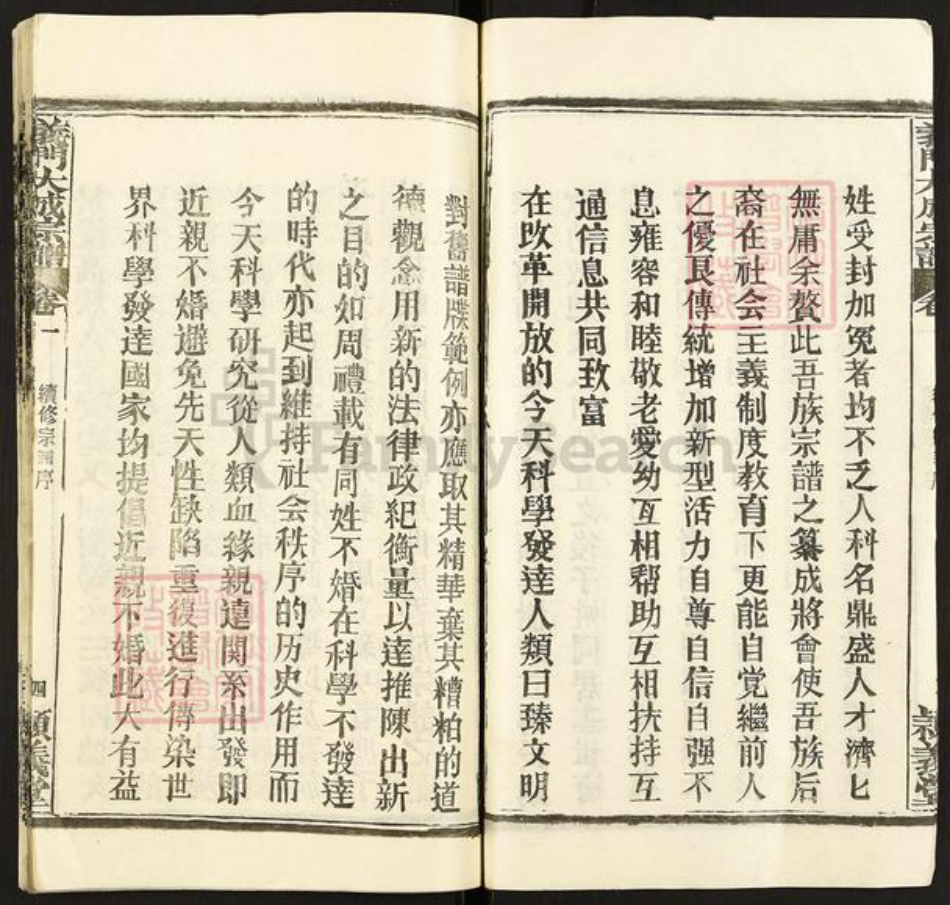 姓受封加冕者均不乏人科名鼎盛人才濟匕
無庸余贅此吾族宗譜之纂成將會使吾族后
裔在社会主義制度教育下更能自觉繼前人
之優良傳統增加新型活力自尊自信自强不
息雍容和睦敬老愛幼互相幇助互相扶持互
通信息共同致富
在改革開放的今天科學發達人類日臻文明
對舊譜牒範例亦應取其精華棄其糟粕的道
德觀念用新的法律政紀衡量以達推陳出新
之目的如周禮載有同姓不婚在科學不發達
的時代亦起到維持社会秩序的历史作用而
今天科學研究從人類血緣親遠関系出發即
近親不婚避免先天性缺陷重復進行傳染世
界科學發達國家均提倡近親不婚此大有益
義門大成宗譜
卷一
續修宗譜序
四
FamilySearch